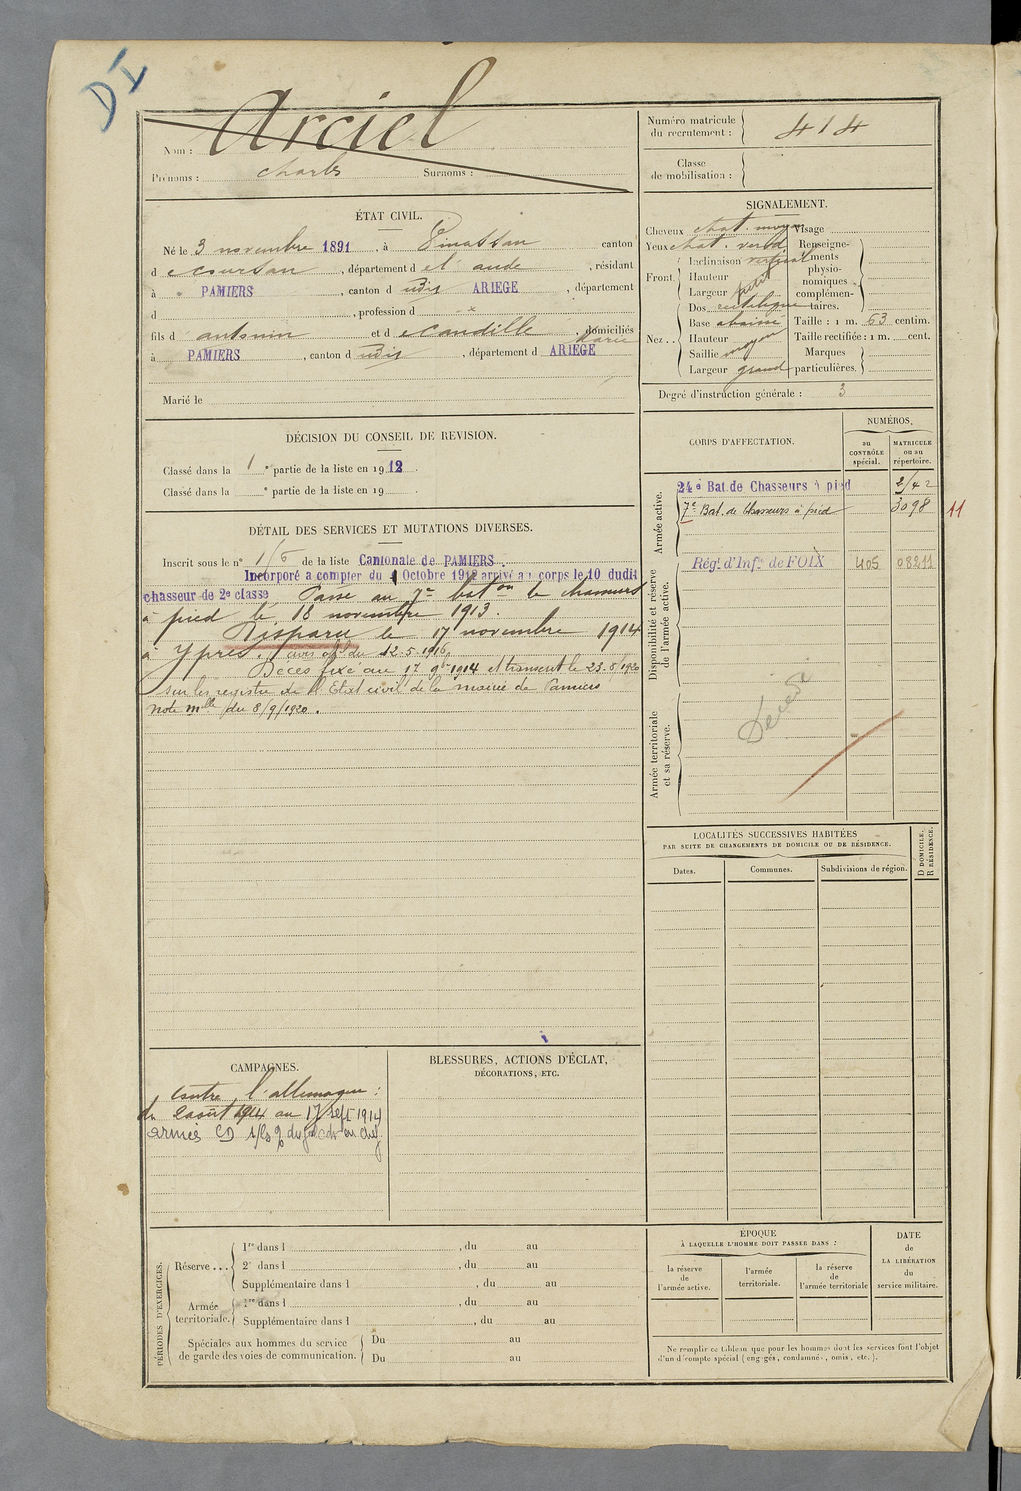 DI
Nom : Arciel
Prénoms : Charles Surnoms :
Numéro matricule du recrutement : 414
Classe de mobilisation :
ÉTAT CIVIL.
Né le 3 novembre 1891, à canton
d e coursan, département d e l'aude, résidant
à PAMIERS, canton d udit ARIEGE, département
d , profession d x
fils d antonin et d e candille marie, domiciliés
à PAMIERS, canton d udit, département d ARIEGE
Marié le
SIGNALEMENT.
Cheveux chat. moyen Visage
Yeux chat. verd Renseignements physionomiques complémentaires.
Front. Inclinaison vertical
Hauteur
Largeur petit
Nez.. Dos rectiligne
Base abaissé
Hauteur
Saillie moyen
Largeur grand
Taille : 1 m. 63 centim.
Taille rectifiée : 1 m. cent.
Marques particulières.
Degré d'instruction générale : 3
DÉCISION DU CONSEIL DE REVISION.
Classé dans la 1e partie de la liste en 1912.
Classé dans la e partie de la liste en 19
DÉTAIL DES SERVICES ET MUTATIONS DIVERSES.
Inscrit sous le n° 1/6 de la liste Cantonale de PAMIERS.
Incorporé a compter du 1 Octobre 1912 arrivé au corps le 10 dudit
chasseur de 2e classe Passé au 7e baton de chasseurs
à pied le 18 novembre 1913.
Disparu le 17 novembre 1914
à Ypres. avis off. du 12-5-1916,
Décès fixé au 17 9bre 1914 et transcrit le 23-8/1920
sur les registre de l'Etat civil de la mairie de Pamiers
note mlle du 8/9/1920.
CORPS D'AFFECTATION.
NUMÉROS,
au CONTRÔLE spécial.
MATRICULE ou au répertoire.
Armée active.
24e Bat. de Chasseurs à pied
7e Bat. de Chasseurs à pied 3098 11
Disponibilité et réserve de l'armée active.
Régt d'Infie de FOIX 405 08211
Armée territoriale et sa réserve.
Décédé
LOCALITÉS SUCCESSIVES HABITÉES
PAR SUITE DE CHANGEMENTS DE DOMICILE OU DE RÉSIDENCE.
Dates. Communes. Subdivisions de région. D DOMICILE. R RÉSIDENCE.
CAMPAGNES.
Contre l'allemagne :
du 2 août 1914 au 17 sept 1914
armées
BLESSURES, ACTIONS D'ÉCLAT,
DÉCORATIONS, ETC.
PÉRIODES D'EXERCICES.
Réserve... 1re dans l , du au
2e dans l , du au
Supplémentaire dans l , du au
Armée territoriale. 1re dans l , du au
Supplémentaire dans l , du au
Spéciales aux hommes du service de garde des voies de communication. Du au
Du au
ÉPOQUE
À LAQUELLE L'HOMME DOIT PASSER DANS :
la réserve de l'armée active.
l'armée territoriale.
la réserve de l'armée territoriale
DATE de LA LIBÉRATION du service militaire.
Ne remplir ce tableau que pour les hommes dont les services font l'objet
d'un décompte spécial (engagés, condamnés, omis, etc.).